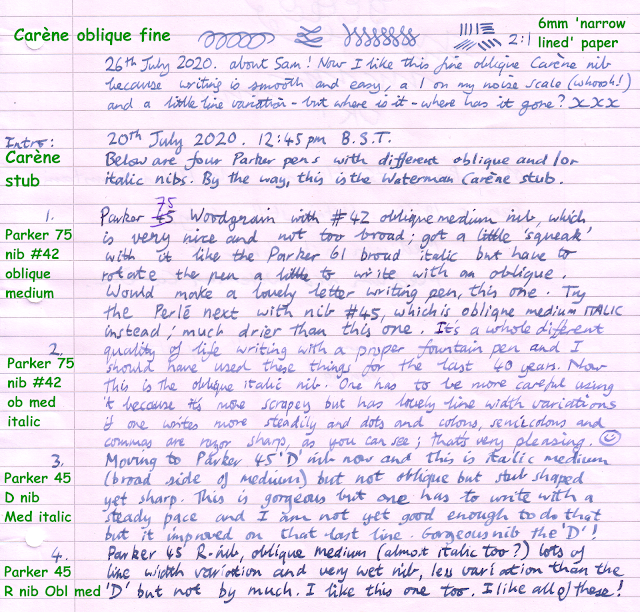 Carène oblique fine
2:1
6mm 'narrow
lined' paper
26th July 2020. about 5am! Now I like this fine oblique Carène nib
because writing is smooth and easy, a 1 on my noise scale (whoosh!)
and a little line variation - but where is it - where has it gone? xxx
Intro: 20th July 2020. 12:45pm B.S.T.
Carène
stub
Below are four Parker pens with different oblique and/or
italic nibs. By the way, this is the Waterman Carène stub.
1. Parker 75 Woodgrain with #42 oblique medium nib, which
Parker 75
nib #42
oblique
medium
is very nice and not too broad; got a little 'squeak'
with it like the Parker 61 broad italic but have to
rotate the pen a little to write with an oblique.
Would make a lovely letter writing pen, this one. Try
the Perlé next with nib #45, which is oblique medium ITALIC
instead; much drier than this one. It's a whole different
2. quality of life writing with a proper fountain pen and I
Parker 75
nib #42
ob med
italic
should have used these things for the last 40 years. Now
this is the oblique italic nib. One has to be more careful using
it because it's more scrapey but has lovely line width variations
if one writes more steadily and dots and colons, semicolons and
commas are razor sharp, as you can see; that's very pleasing. ☺
3. Moving to Parker 45 'D' nib now and this is italic medium
Parker 45
D nib
Med italic
(broad side of medium) but not oblique but stub shaped
yet sharp. This is gorgeous but one has to write with a
steady pace and I am not yet good enough to do that
but it improved on that last line. Gorgeous nib the 'D'!
4. Parker 45 R-nib, oblique medium (almost italic too?) lots of
Parker 45
R nib Obl med
line width variation and very wet nib, less variation than the
'D' but not by much. I like this one too. I like all of these!